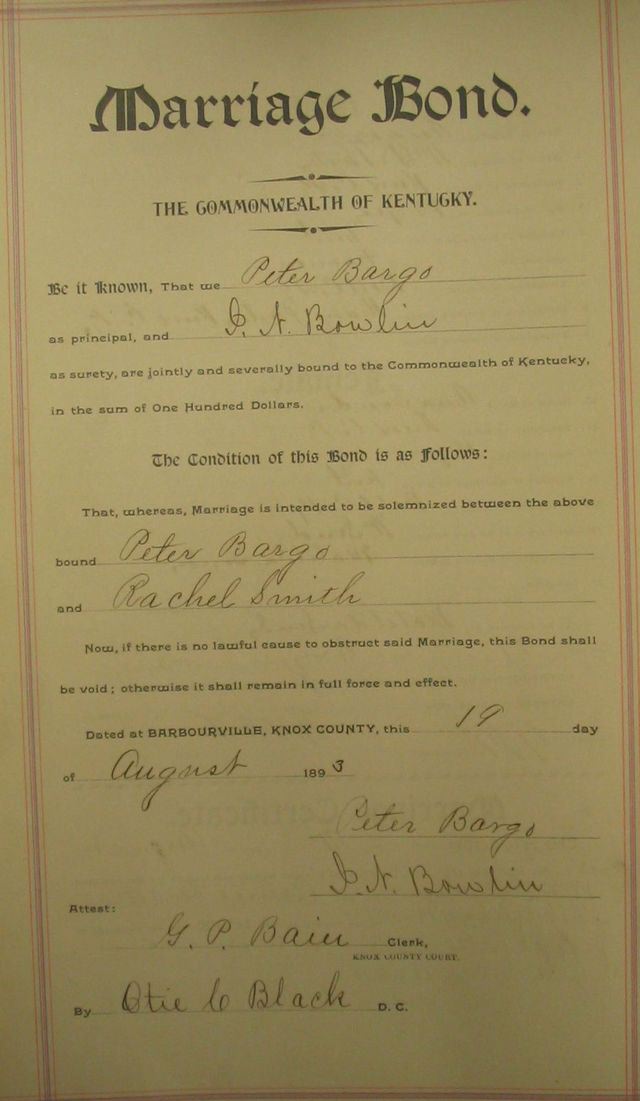 Marriage Bond.
THE COMMONWEALTH OF KENTUCKY.
Be it Known, That we Peter Bargo
as principal, and I. N. Bowlin
as surety, are jointly and severally bound to the Commonwealth of Kentucky,
in the sum of One Hundred Dollars.
The Condition of this Bond is as Follows:
That, whereas, Marriage is intended to be solemnized between the above
bound Peter Bargo
and Rachel Smith
Now, if there is no lawful cause to obstruct said Marriage, this Bond shall
be void; otherwise it shall remain in full force and effect.
Dated at BARBOURVILLE, KNOX COUNTY, this 19 day
of August 1893
Peter Bargo
I. N. Bowlin
Attest:
G. P. Bain Clerk,
KNOX COUNTY COURT.
By Otie C Black D. C.